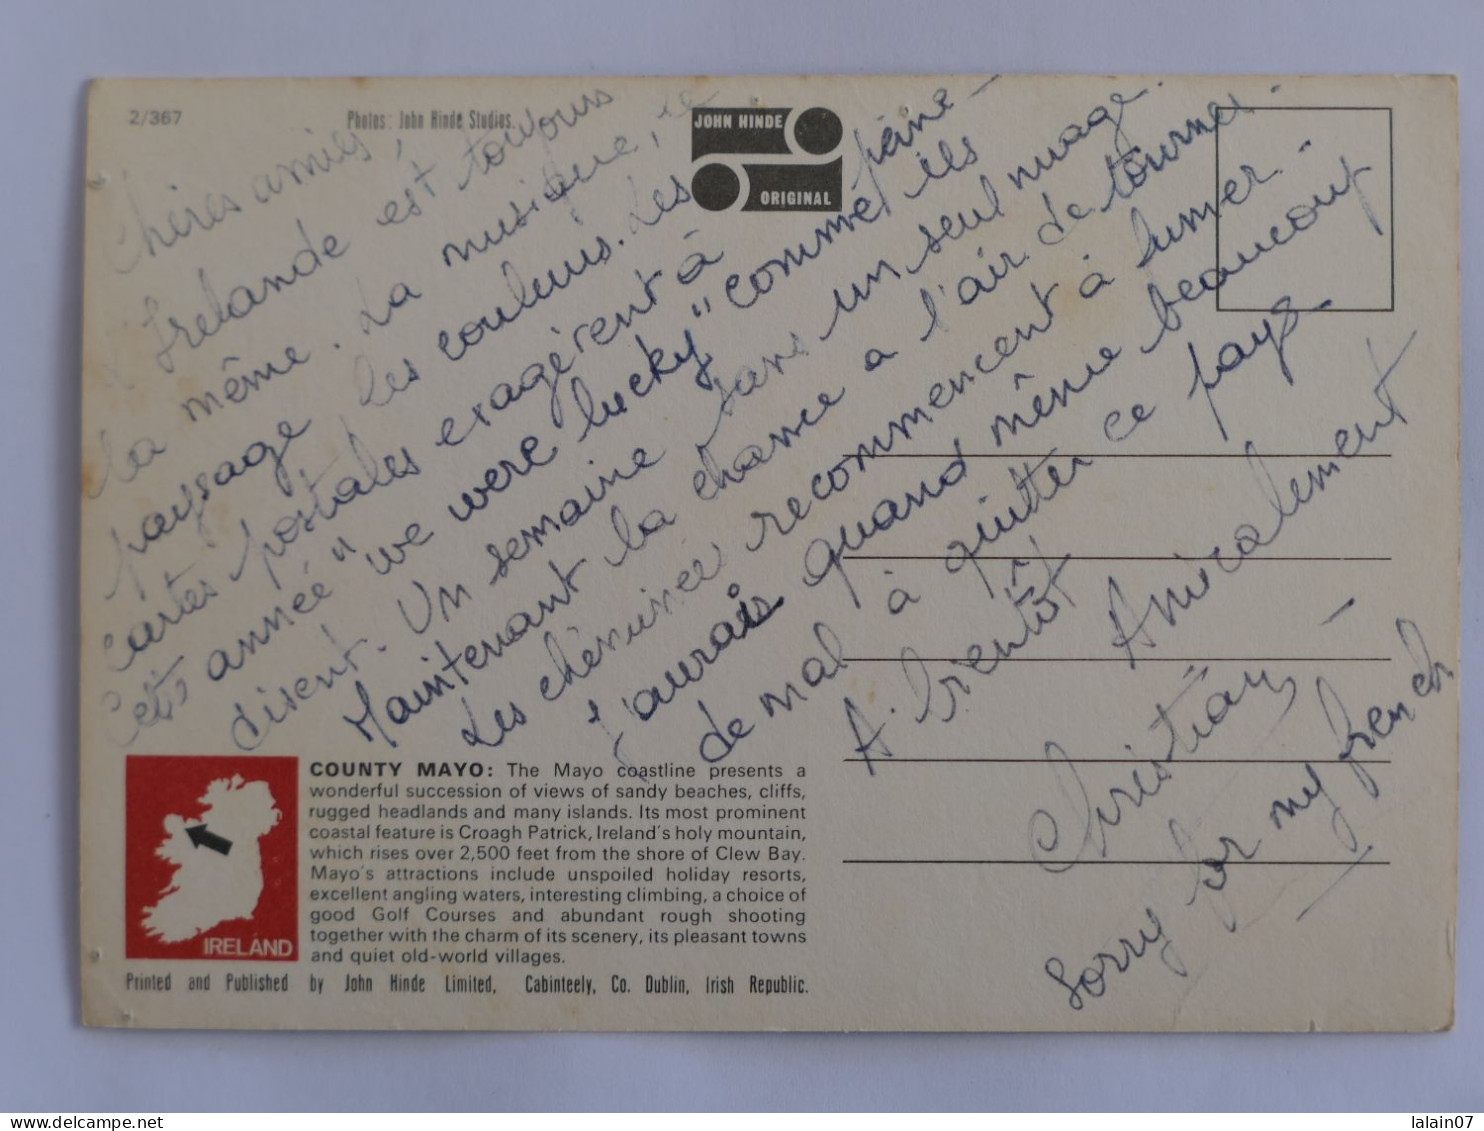 2/367
Photos: John Hinde Studios.
JOHN HINDE
ORIGINAL
Chères amies,
L'Irelande est toujours
la même. La musique, le
paysage les couleurs. Les
cartes postales exagérent à peine -
Cette année "we were lucky" comme ils
disent. Un semaine sans un seul nuage.
Maintenant la chance a l'air de tourner.
Les chéminée recommencent à fumer.
J'aurais quand même beaucoup
de mal à quitter ce pays -
A bientôt Amicalement
Christian
Sorry for my french
COUNTY MAYO: The Mayo coastline presents a
wonderful succession of views of sandy beaches, cliffs,
rugged headlands and many islands. Its most prominent
coastal feature is Croagh Patrick, Ireland's holy mountain,
which rises over 2,500 feet from the shore of Clew Bay.
Mayo's attractions include unspoiled holiday resorts,
excellent angling waters, interesting climbing, a choice of
good Golf Courses and abundant rough shooting
together with the charm of its scenery, its pleasant towns
and quiet old-world villages.
IRELAND
Printed and Published by John Hinde Limited, Cabinteely, Co. Dublin, Irish Republic.
delcampe.net
lalain07